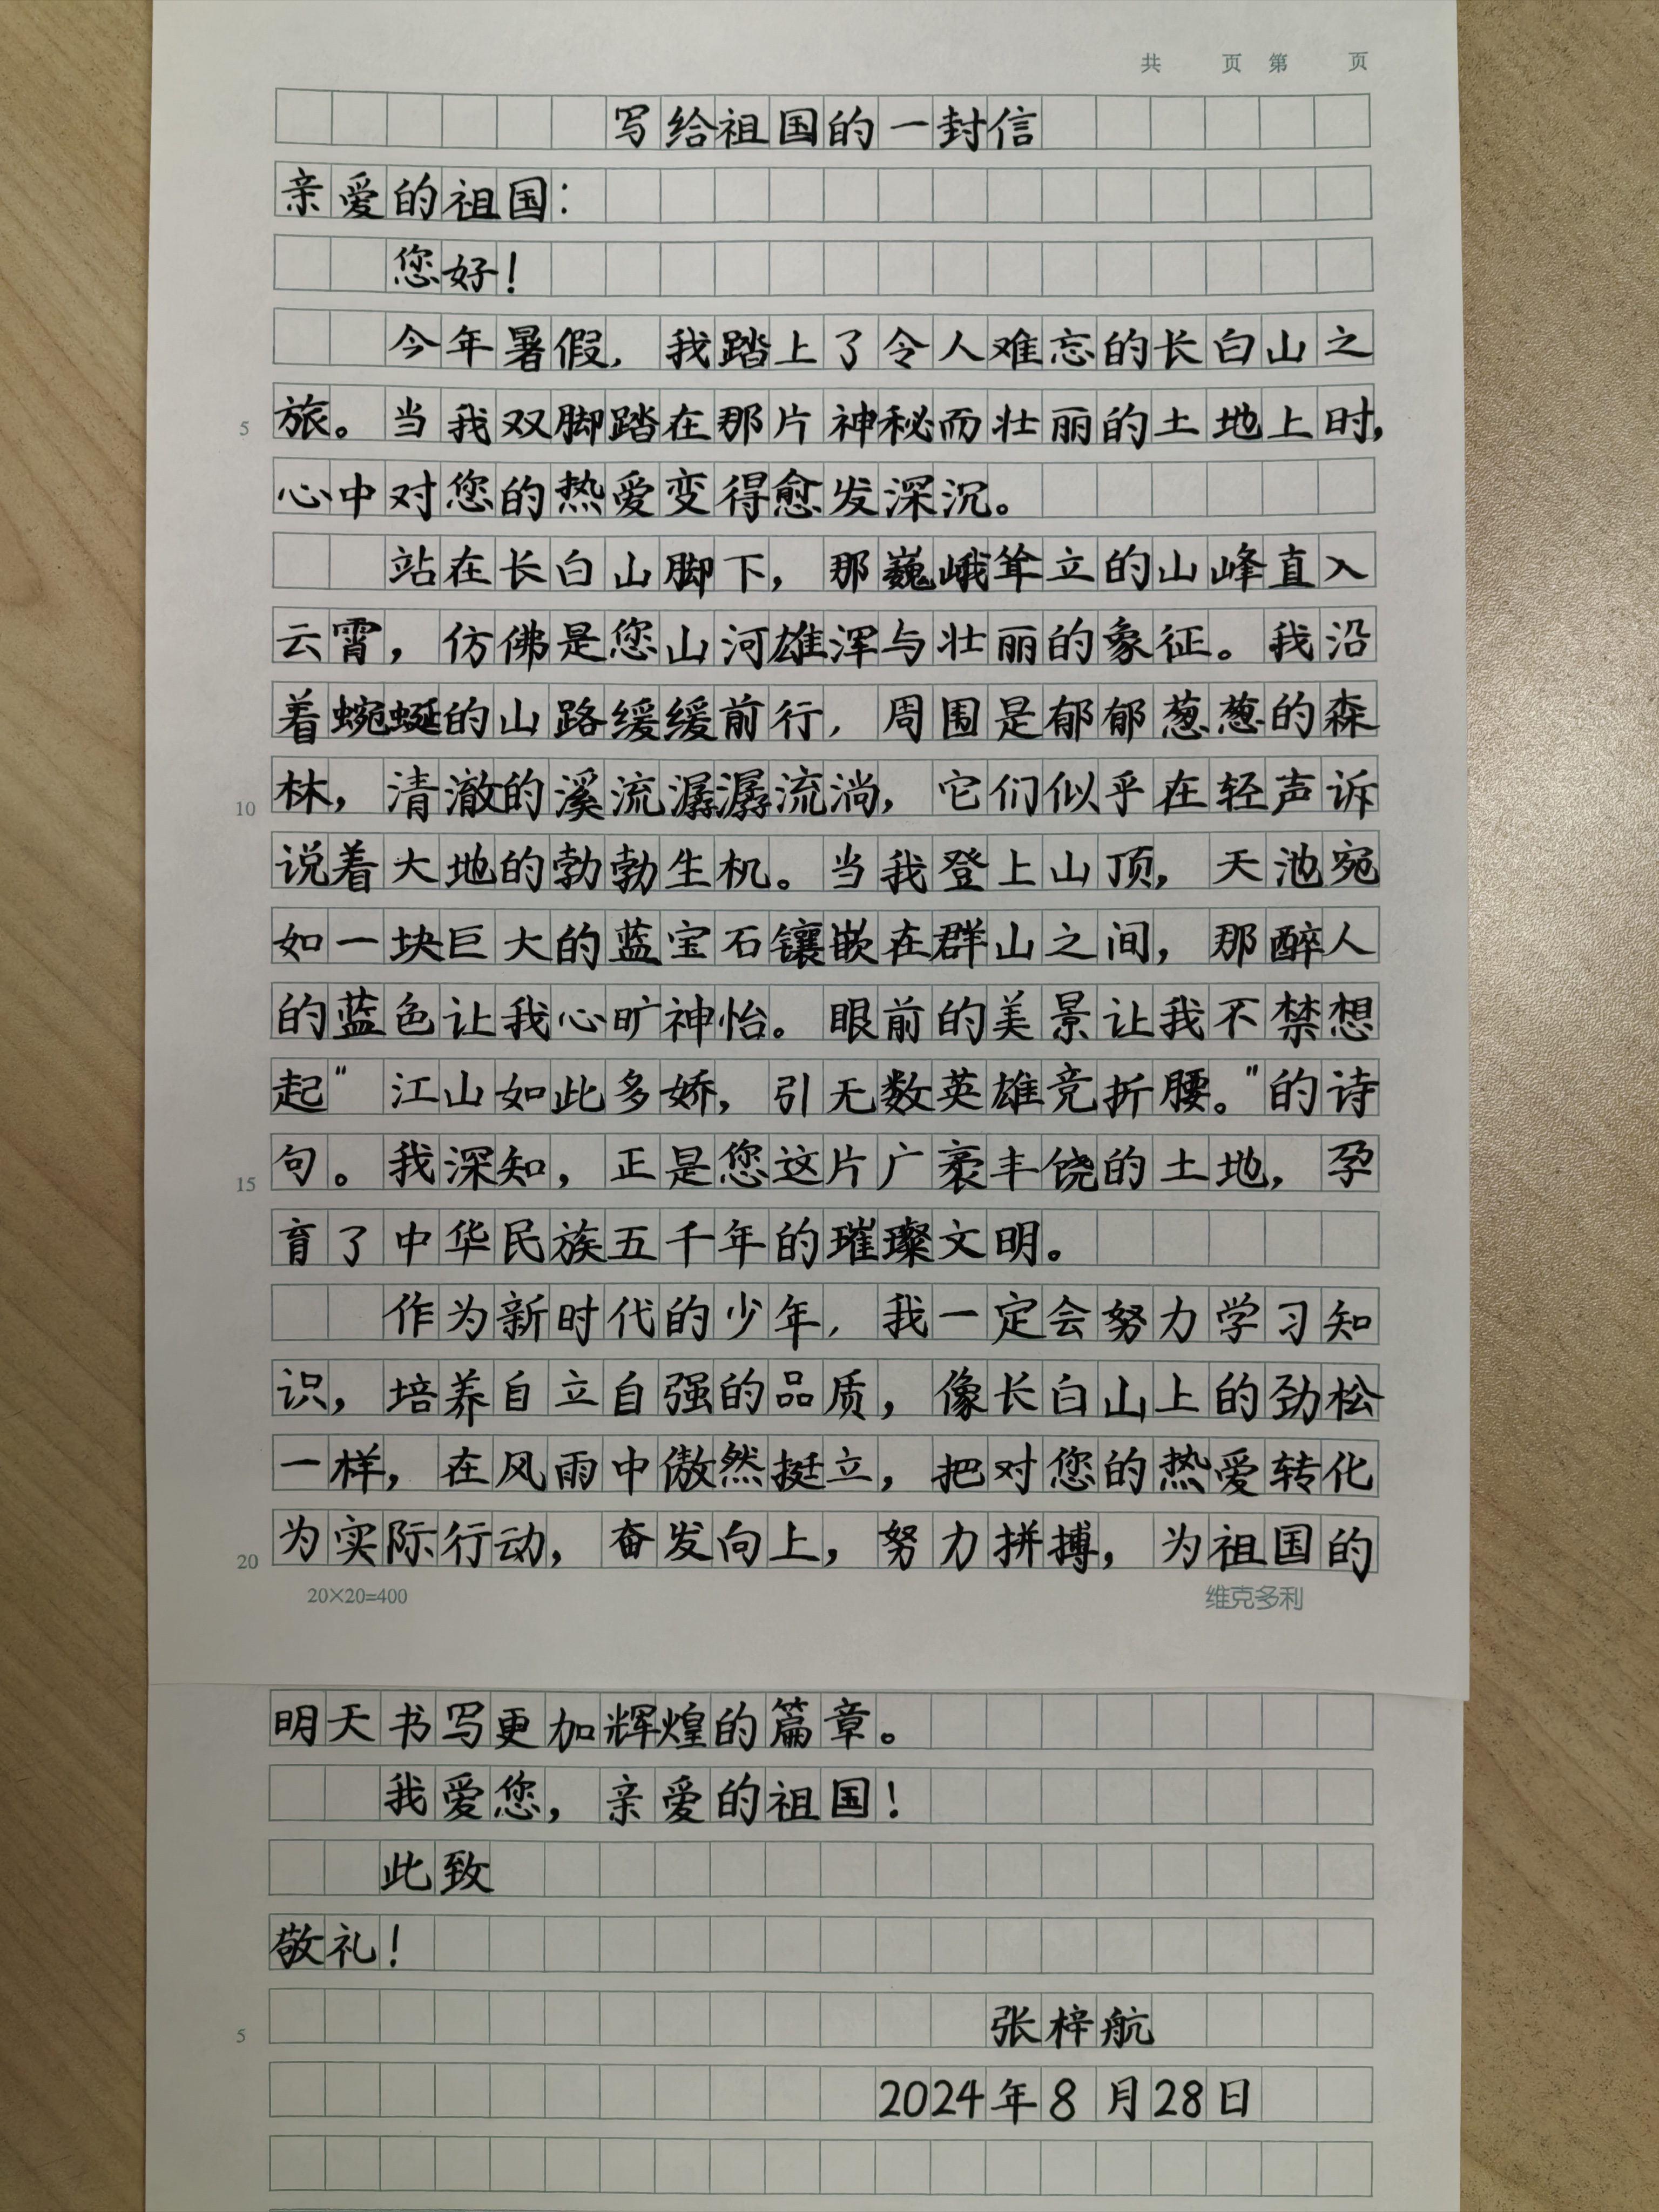 共 页 第 页
写给祖国的一封信
亲爱的祖国：
您好！
今年暑假，我踏上了令人难忘的长白山之
5 旅。当我双脚踏在那片神秘而壮丽的土地上时，
心中对您的热爱变得愈发深沉。
站在长白山脚下，那巍峨耸立的山峰直入
云霄，仿佛是您山河雄浑与壮丽的象征。我沿
着蜿蜒的山路缓缓前行，周围是郁郁葱葱的森
10 林，清澈的溪流潺潺流淌，它们似乎在轻声诉
说着大地的勃勃生机。当我登上山顶，天池宛
如一块巨大的蓝宝石镶嵌在群山之间，那醉人
的蓝色让我心旷神怡。眼前的美景让我不禁想
起"江山如此多娇，引无数英雄竞折腰。"的诗
15 句。我深知，正是您这片广袤丰饶的土地，孕
育了中华民族五千年的璀璨文明。
作为新时代的少年，我一定会努力学习知
识，培养自立自强的品质，像长白山上的劲松
一样，在风雨中傲然挺立，把对您的热爱转化
20 为实际行动，奋发向上，努力拼搏，为祖国的
20×20=400 维克多利
明天书写更加辉煌的篇章。
我爱您，亲爱的祖国！
此致
敬礼！
5 张梓航
2024年8月28日